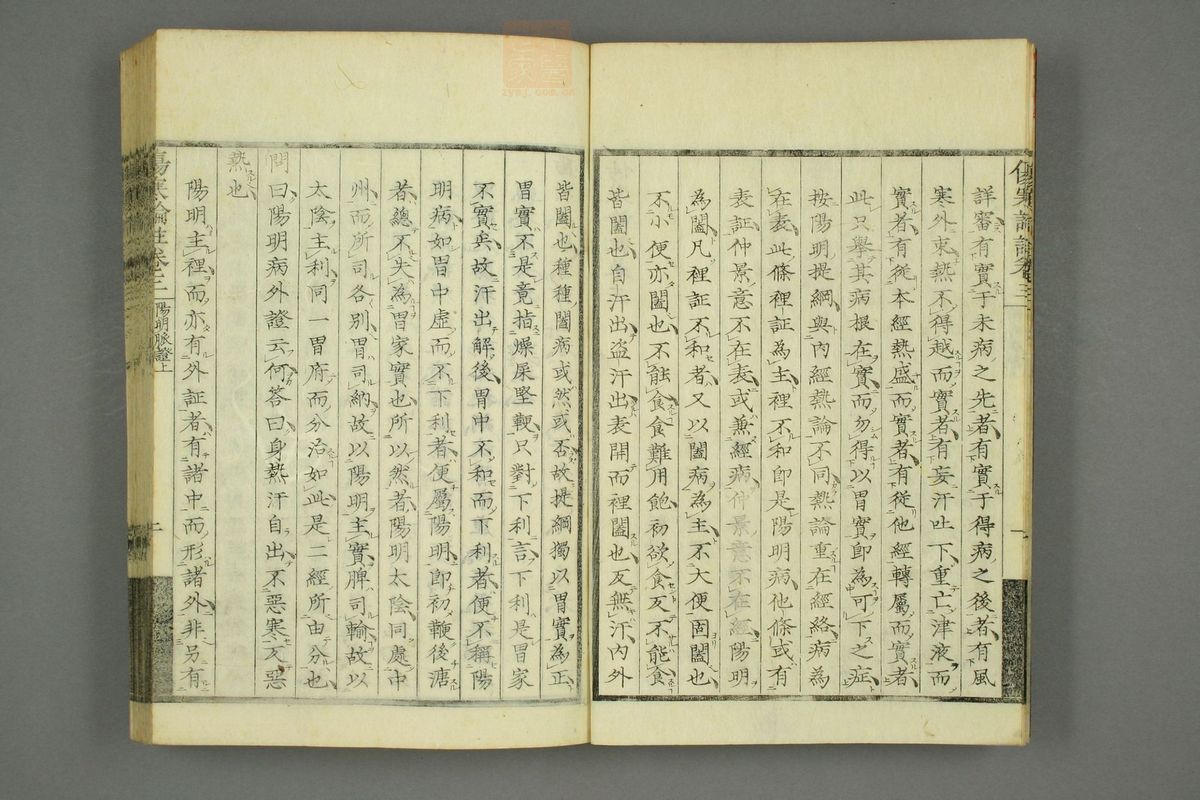 傷寒論註卷三
詳審有實于未病之先者有實于得病之後者有風
寒外束熱不得越而實者有妄汗吐下重亡津液而
實者有從本經熱盛而實者有從他經轉屬而實者
此只舉其病根在實而勿得以胃實卽為可下之症
按陽明提綱與內經熱論不同熱論重在經絡病為
在表此條裡証為主裡不和卽是陽明病他條或有
表証仲景意不在表或兼經病仲景意不在經陽明
為闔凡裡証不和者又以闔病為主不大便固闔也
不小便亦闔也不能食食難用飽初欲食反不能食
皆闔也自汗出盗汗出表開而裡闔也反無汗內外
皆闔也種種闔病或然或否故提綱獨以胃實為正
胃實不是竟指燥屎堅鞕只對下利言下利是胃家
不實矣故汗出解後胃中不和而下利者便不稱陽
明病如胃中虛而不下利者便屬陽明卽初鞕後溏
者總不失為胃家實也所以然者陽明太陰同處中
州而所司各別胃司納故以陽明主實脾司輸故以
太陰主利同一胃府而分治如此是二經所由分也
問曰陽明病外證云何答曰身熱汗自出不惡寒反惡
熱也
陽明主裡而亦有外証者有諸中而形諸外非另有
傷寒論註卷三 陽明脈證上
zysj.com.cn